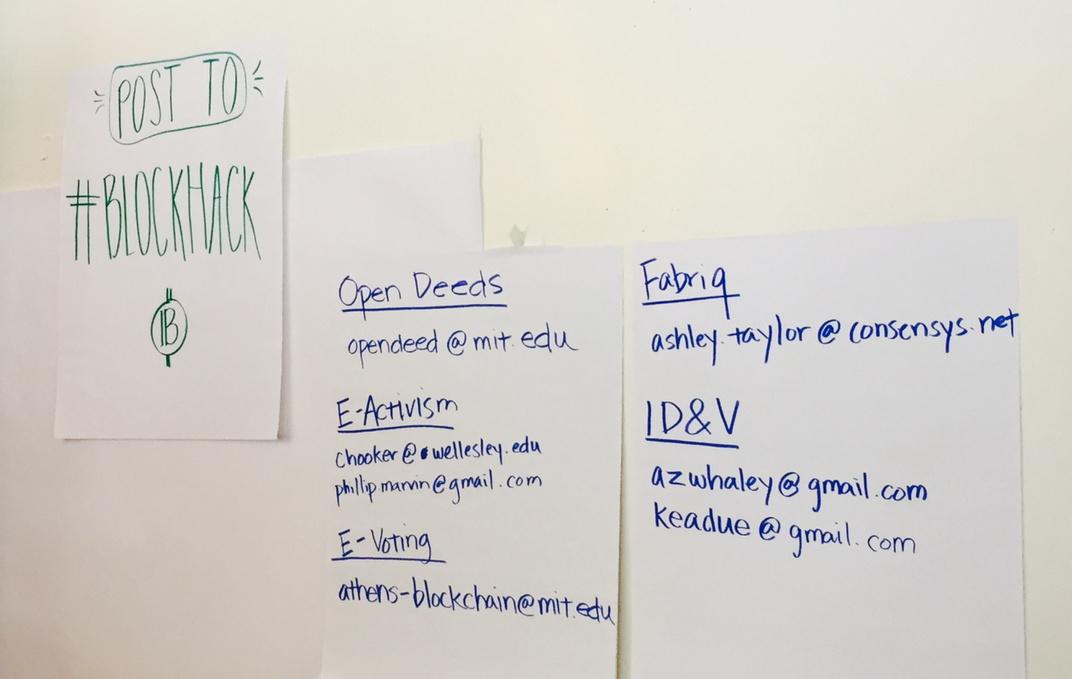 POST TO
#BLOCKHACK
B
Open Deeds
opendeed@mit.edu
E-Activism
chooker@wellesley.edu
phillipmarvin@gmail.com
E-Voting
athens-blockchain@mit.edu
Fabriq
ashley.taylor@consensys.net
ID&V
azwhaley@gmail.com
keadue@gmail.com